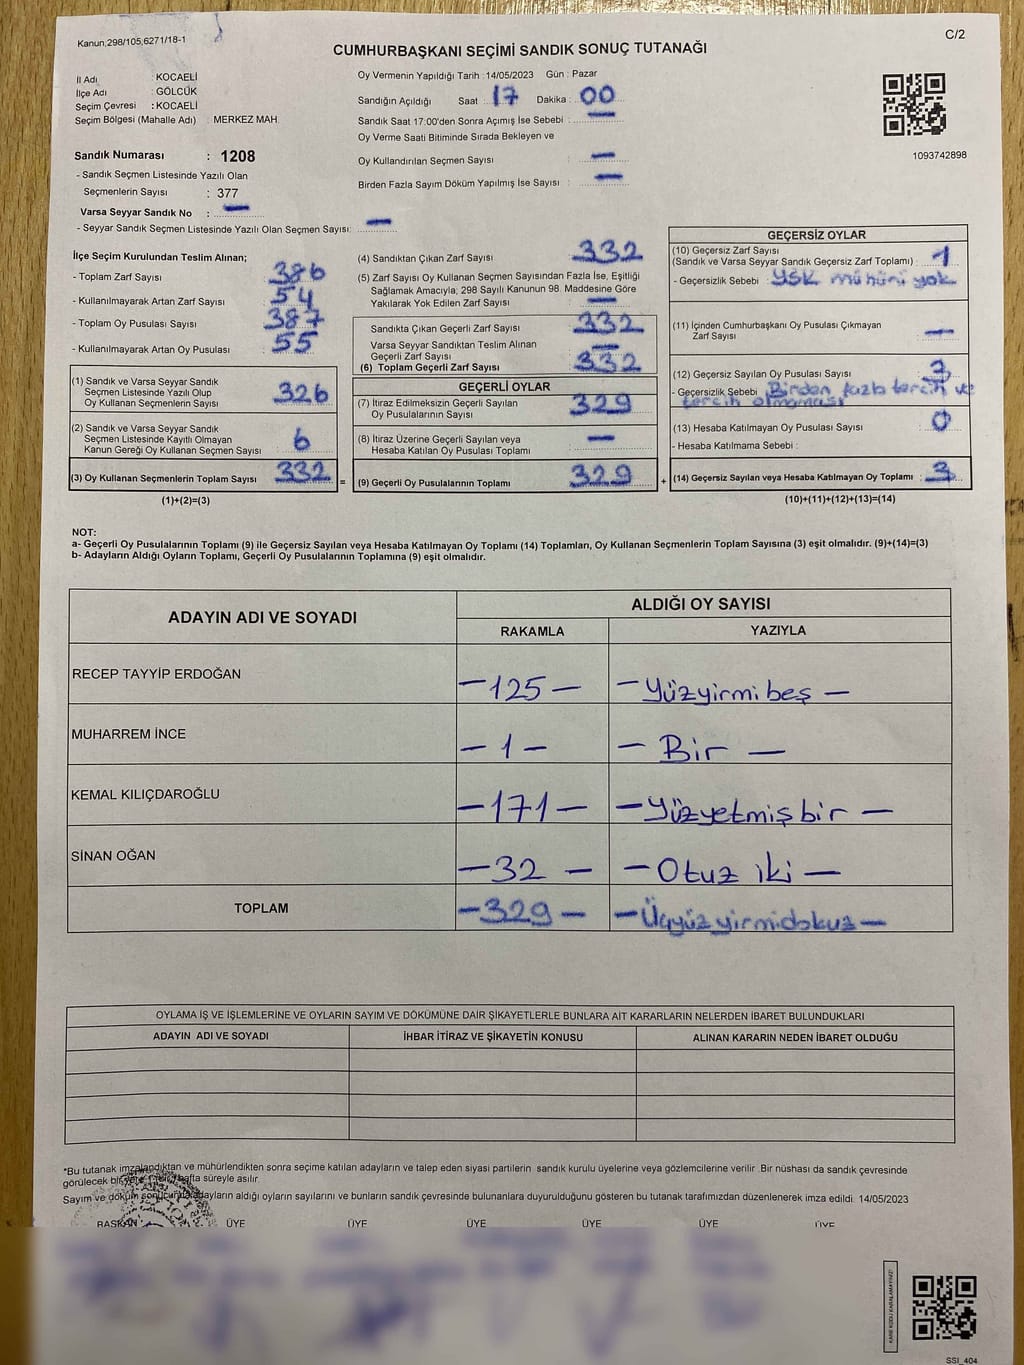 Kanun;298/105,6271/18-1
C/2
CUMHURBAŞKANI SEÇİMİ SANDIK SONUÇ TUTANAĞI
İl Adı : KOCAELİ
İlçe Adı : GÖLCÜK
Seçim Çevresi : KOCAELİ
Seçim Bölgesi (Mahalle Adı) : MERKEZ MAH.
Oy Vermenin Yapıldığı Tarih : 14/05/2023 Gün : Pazar
Sandığın Açıldığı Saat : 17 Dakika : 00
Sandık Saat 17:00'den Sonra Açımış İse Sebebi : —
Oy Verme Saati Bitiminde Sırada Bekleyen ve
Oy Kullandırılan Seçmen Sayısı : —
Birden Fazla Sayım Döküm Yapılmış İse Sayısı : —
1093742898
Sandık Numarası : 1208
- Sandık Seçmen Listesinde Yazılı Olan
Seçmenlerin Sayısı : 377
Varsa Seyyar Sandık No : —
- Seyyar Sandık Seçmen Listesinde Yazılı Olan Seçmen Sayısı: —
İlçe Seçim Kurulundan Teslim Alınan;
- Toplam Zarf Sayısı : 386
- Kullanılmayarak Artan Zarf Sayısı : 54
- Toplam Oy Pusulası Sayısı : 387
- Kullanılmayarak Artan Oy Pusulası : 55
(1) Sandık ve Varsa Seyyar Sandık
Seçmen Listesinde Yazılı Olup
Oy Kullanan Seçmenlerin Sayısı : 326
(2) Sandık ve Varsa Seyyar Sandık
Seçmen Listesinde Kayıtlı Olmayan
Kanun Gereği Oy Kullanan Seçmen Sayısı : 6
(3) Oy Kullanan Seçmenlerin Toplam Sayısı : 332
(1)+(2)=(3)
=
(4) Sandıktan Çıkan Zarf Sayısı : 332
(5) Zarf Sayısı Oy Kullanan Seçmen Sayısından Fazla İse, Eşitliği
Sağlamak Amacıyla; 298 Sayılı Kanunun 98. Maddesine Göre
Yakılarak Yok Edilen Zarf Sayısı : —
Sandıkta Çıkan Geçerli Zarf Sayısı : 332
Varsa Seyyar Sandıktan Teslim Alınan
Geçerli Zarf Sayısı : —
(6) Toplam Geçerli Zarf Sayısı : 332
GEÇERLİ OYLAR
(7) İtiraz Edilmeksizin Geçerli Sayılan
Oy Pusulalarının Sayısı : 329
(8) İtiraz Üzerine Geçerli Sayılan veya
Hesaba Katılan Oy Pusulası Toplamı : —
(9) Geçerli Oy Pusulalarının Toplamı : 329
+
GEÇERSİZ OYLAR
(10) Geçersiz Zarf Sayısı
(Sandık ve Varsa Seyyar Sandık Geçersiz Zarf Toplamı) : 1
- Geçersizlik Sebebi : YSK mühürü yok
(11) İçinden Cumhurbaşkanı Oy Pusulası Çıkmayan
Zarf Sayısı : —
(12) Geçersiz Sayılan Oy Pusulası Sayısı : 3
- Geçersizlik Sebebi : Birden fazla tercih ve
tercih olmaması
(13) Hesaba Katılmayan Oy Pusulası Sayısı : 0
- Hesaba Katılmama Sebebi :
(14) Geçersiz Sayılan veya Hesaba Katılmayan Oy Toplamı : 3
(10)+(11)+(12)+(13)=(14)
NOT:
a- Geçerli Oy Pusulalarının Toplamı (9) ile Geçersiz Sayılan veya Hesaba Katılmayan Oy Toplamı (14) Toplamları, Oy Kullanan Seçmenlerin Toplam Sayısına (3) eşit olmalıdır. (9)+(14)=(3)
b- Adayların Aldığı Oyların Toplamı, Geçerli Oy Pusulalarının Toplamına (9) eşit olmalıdır.
ADAYIN ADI VE SOYADI
ALDIĞI OY SAYISI
RAKAMLA YAZIYLA
RECEP TAYYİP ERDOĞAN — 125 — — Yüzyirmi beş —
MUHARREM İNCE — 1 — — Bir —
KEMAL KILIÇDAROĞLU — 171 — — Yüzyetmiş bir —
SİNAN OĞAN — 32 — — Otuz iki —
TOPLAM — 329 — — Üçyüz yirmidokuz —
OYLAMA İŞ VE İŞLEMLERİNE VE OYLARIN SAYIM VE DÖKÜMÜNE DAİR ŞİKAYETLERLE BUNLARA AİT KARARLARIN NELERDEN İBARET BULUNDUKLARI
ADAYIN ADI VE SOYADI İHBAR İTİRAZ VE ŞİKAYETİN KONUSU ALINAN KARARIN NEDEN İBARET OLDUĞU
*Bu tutanak imzalandıktan ve mühürlendikten sonra seçime katılan adayların ve talep eden siyasi partilerin sandık kurulu üyelerine veya gözlemcilerine verilir .Bir nüshası da sandık çevresinde
görülecek bir yere hafta süreyle asılır.
Sayım ve döküm sonucunda adayların aldığı oyların sayılarını ve bunların sandık çevresinde bulunanlara duyurulduğunu gösteren bu tutanak tarafımızdan düzenlenerek imza edildi. 14/05/2023
BAŞKAN ÜYE ÜYE ÜYE ÜYE ÜYE ÜYE
KARE KODU KARALAMAYINIZ!
SSI_404